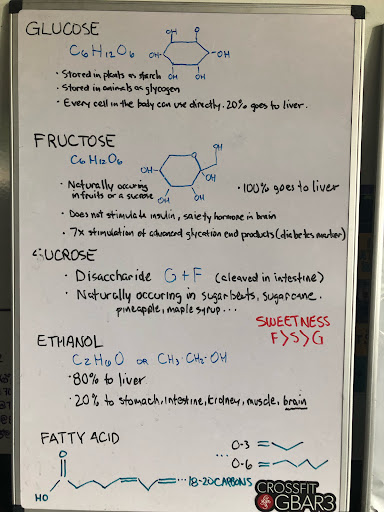 GLUCOSE
C6H12O6
OH
O
OH
OH
OH
OH
• Stored in plants as starch
• Stored in animals as glycogen
• Every cell in the body can use directly. 20% goes to liver.
FRUCTOSE
C6H12O6
OH
O
OH
HO
OH
OH
• Naturally occuring
in fruits or a sucrose
• 100% goes to liver
• Does not stimulate insulin, saiety hormone in brain
• 7x stimulation of advanced glycation end products (diabetes marker)
SUCROSE
• Disaccharide G+F (cleaved in intestine)
• Naturally occuring in sugarbeets, sugarcane.
pineapple, maple syrup...
SWEETNESS
F>S>G
ETHANOL
C2H6O OR CH3-CH2-OH
• 80% to liver
• 20% to stomach, intestine, kidney, muscle, brain
FATTY ACID
O
HO
...18-20 CARBONS
...
O-3
O-6
CROSSFIT
GBAR3